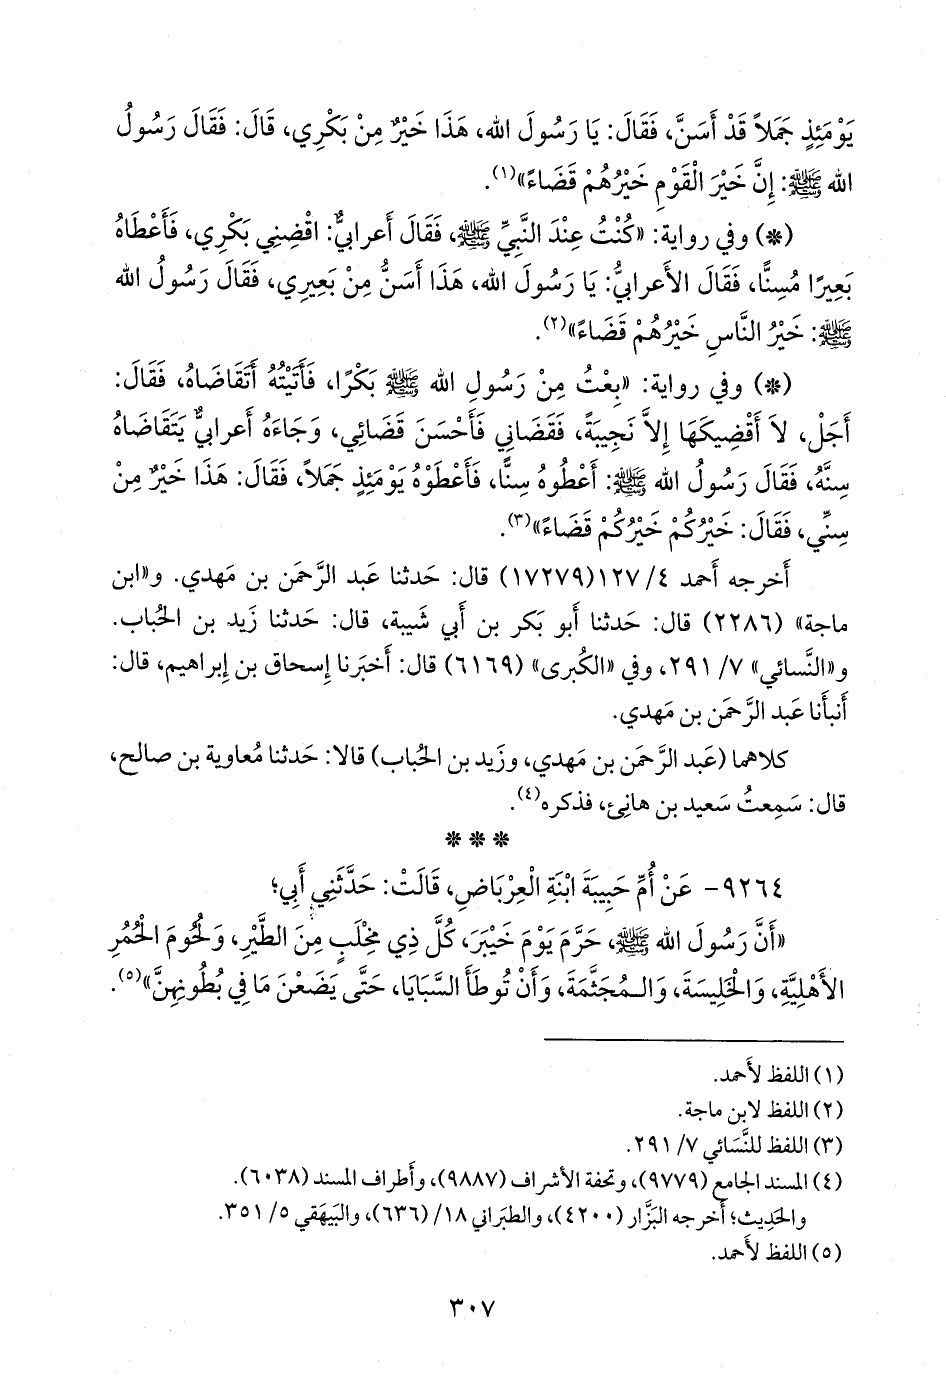 يَوْمَئِذٍ جَمَلاً قَدْ أَسَنَّ، فَقَالَ: يَا رَسُولَ الله، هَذَا خَيْرٌ مِنْ بَكْرِي، قَالَ: فَقَالَ رَسُولُ
الله ﷺ: إِنَّ خَيْرَ الْقَوْمِ خَيْرُهُمْ قَضَاءً»(١).
(*) وفي رواية: «كُنْتُ عِنْدَ النَّبِيِّ ﷺ، فَقَالَ أَعرابيٌّ: اقْضِنِي بَكْرِي، فَأَعْطَاهُ
بَعِيرًا مُسِنًّا، فَقَالَ الأَعرابيُّ: يَا رَسُولَ الله، هَذَا أَسَنُّ مِنْ بَعِيرِي، فَقَالَ رَسُولُ الله
ﷺ: خَيْرُ النَّاسِ خَيْرُهُمْ قَضَاءً»(٢).
(*) وفي رواية: «بِعْتُ مِنْ رَسُولِ الله ﷺ بَكْرًا، فَأَتَيْتُهُ أَتَقَاضَاهُ، فَقَالَ:
أَجَلْ، لاَ أَقْضِيكَهَا إِلاَّ نَجِيبَةً، فَقَضَانِي فَأَحْسَنَ قَضَائِي، وَجَاءَهُ أَعرابيٌّ يَتَقَاضَاهُ
سِنَّهُ، فَقَالَ رَسُولُ الله ﷺ: أَعْطُوهُ سِنًّا، فَأَعْطَوْهُ يَوْمَئِذٍ جَمَلاً، فَقَالَ: هَذَا خَيْرٌ مِنْ
سِنِّي، فَقَالَ: خَيْرُكُمْ خَيْرُكُمْ قَضَاءً»(٣).
أَخرجه أَحمد ٤/ ١٢٧(١٧٢٧٩) قال: حَدثنا عَبد الرَّحمَن بن مَهدي. و«ابن
ماجة» (٢٢٨٦) قال: حَدثنا أَبو بَكر بن أَبي شَيبة، قال: حَدثنا زَيد بن الحُباب.
و«النَّسائي» ٧/ ٢٩١، وفي «الكُبرى» (٦١٦٩) قال: أَخبَرنا إِسحاق بن إِبراهيم، قال:
أَنبأَنا عَبد الرَّحمَن بن مَهدي.
كلاهما (عَبد الرَّحمَن بن مَهدي، وزَيد بن الحُباب) قالا: حَدثنا مُعاوية بن صالح،
قال: سَمِعتُ سَعيد بن هانِئ، فذكره(٤).
* * *
٩٢٦٤- عَنْ أُمِّ حَبِيبَةَ ابْنَةِ الْعِرْبَاضِ، قَالَتْ: حَدَّثَنِي أَبِي؛
«أَنَّ رَسُولَ الله ﷺ، حَرَّمَ يَوْمَ خَيْبَرَ، كُلَّ ذِي مِخْلَبٍ مِنَ الطَّيْرِ، وَلُحُومَ الْحُمُرِ
الأَهْلِيَّةِ، وَالْخَلِيسَةَ، وَالْمُجَثَّمَةَ، وَأَنْ تُوطَأَ السَّبَايَا، حَتَّى يَضَعْنَ مَا فِي بُطُونِهِنَّ»(٥).
(١) اللفظ لأَحمد.
(٢) اللفظ لابن ماجة.
(٣) اللفظ للنَّسَائي ٧/ ٢٩١.
(٤) المسند الجامع (٩٧٧٩)، وتحفة الأشراف (٩٨٨٧)، وأَطراف المسند (٦٠٣٨).
والحَدِيث؛ أَخرجه البَزَّار (٤٢٠٠)، والطبَراني ١٨/ (٦٣٦)، والبَيهَقي ٥/ ٣٥١.
(٥) اللفظ لأَحمد.
٣٠٧